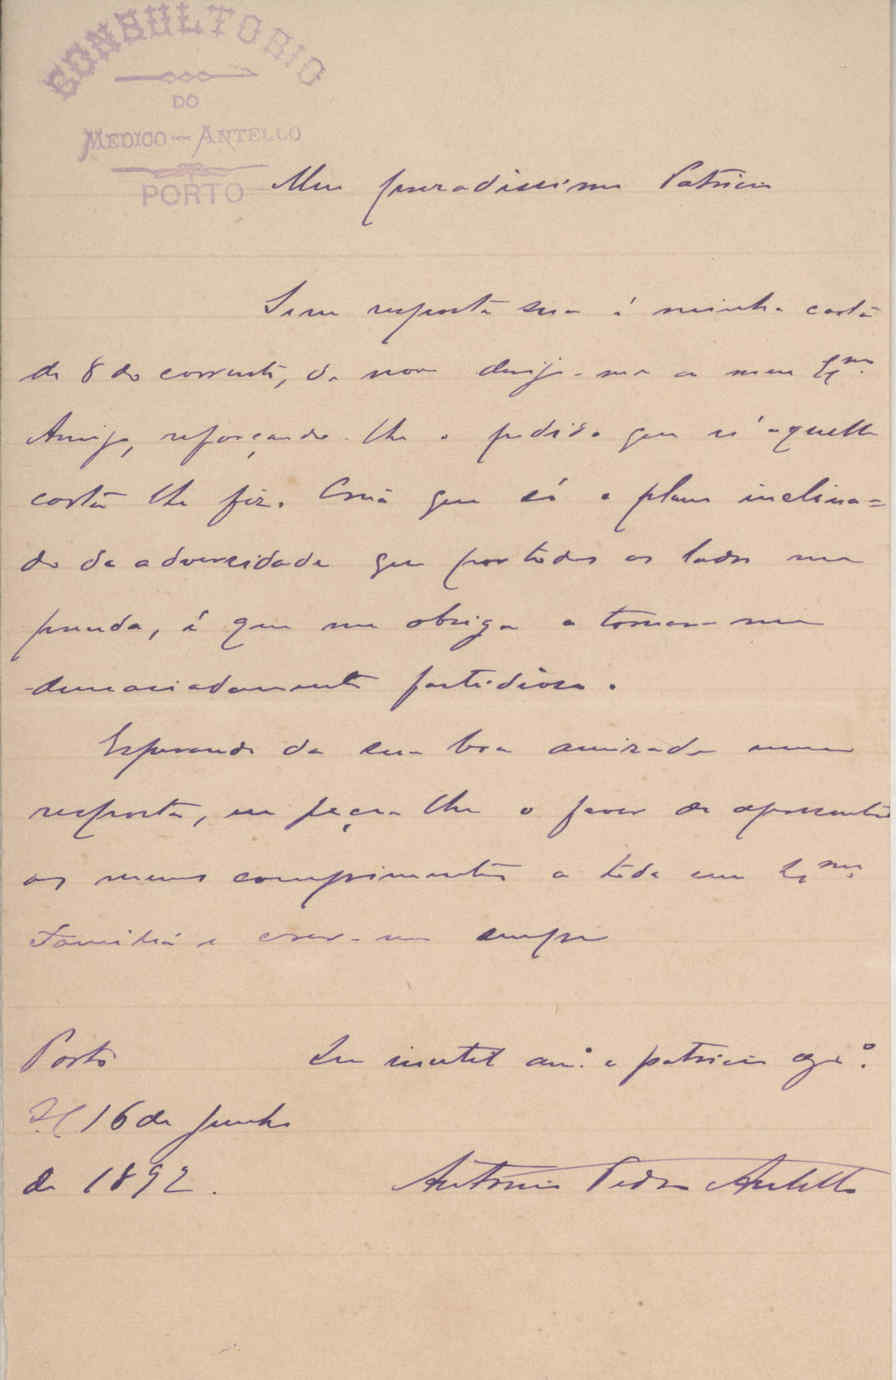 CONSULTORIO
DO
MEDICO-ANTELLO
PORTO
Meu presadissimo Patricio
Sem resposta sua á minha carta
de 8 do corrente, de novo dirijo-me a meu Ex.mo
Amigo, reforçando-lhe o pedido que n'aquella
carta lhe fiz. Creia que só o plano inclina=
do da adversidade que por todos os lados me
prende, é que me obriga a tornar-me
demasiadamente fastidioso.
Esperando da sua boa amizade uma
resposta, eu peço-lhe o favor de apresentar
os meus comprimentos a toda sua Ex.ma
Familia e crer-me sempre
Porto
16 de Junho
de 1892.
Seu inutil am.º e patricio
Antonio Pedro Antello